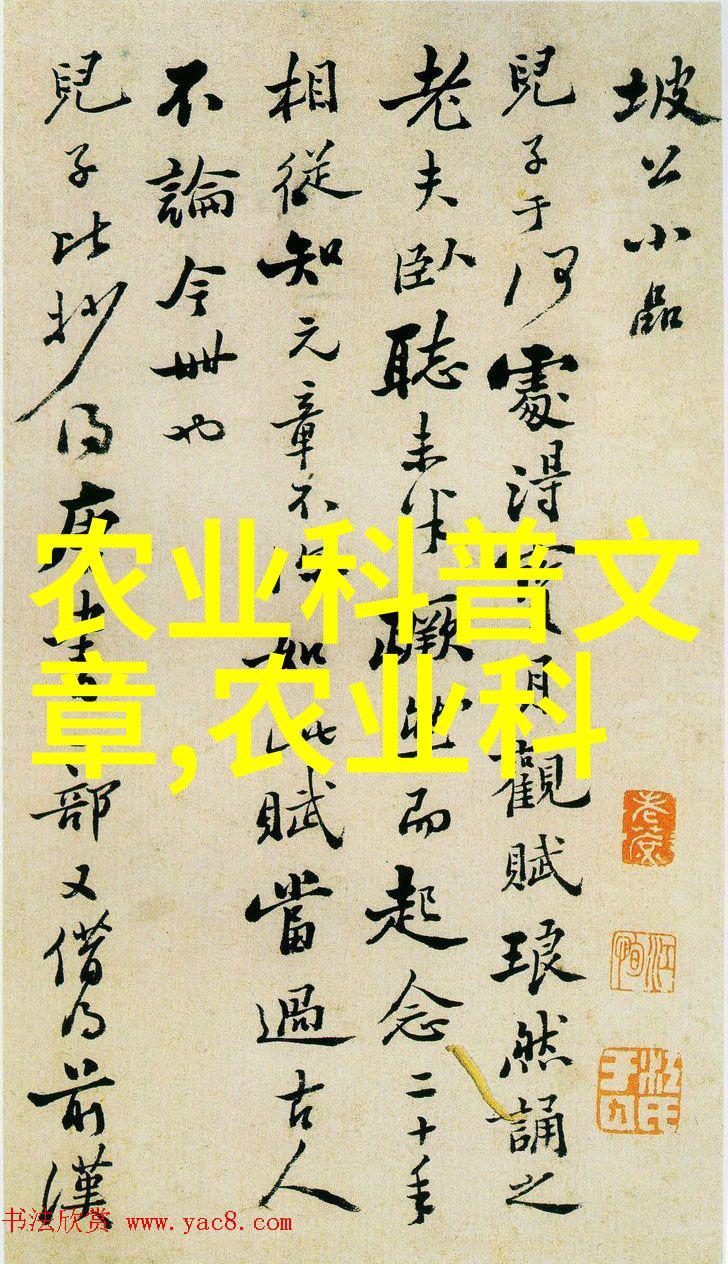 坡公小品
兒子于何處得月觀賦琅然誦之
老夫臥聽未半蹶然而起念二十年
相從知元章不如此賦當過古人
不論今世也
兒子比抄得唐書部又借得前漢
农业科普文
章,农业科
书法欣赏 www.yac8.com